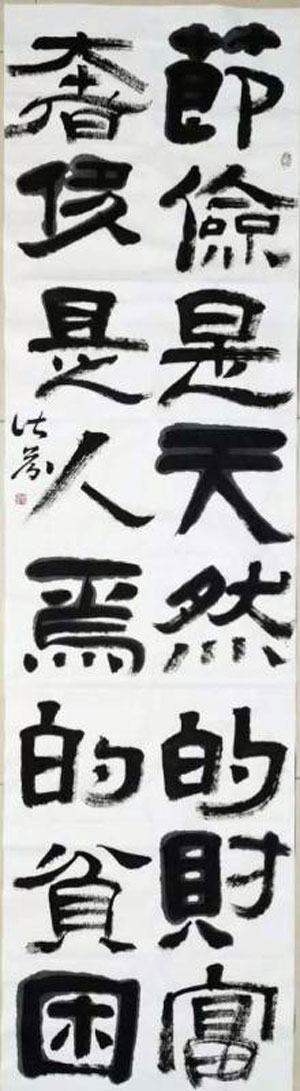 節儉是天然的財富
奢侈是人焉的貧困